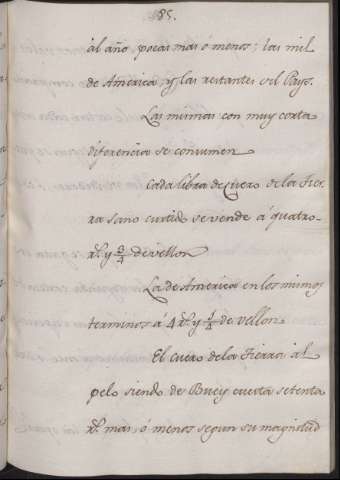 85.
al año, pocas mas ó menos; las mil
de America, y las restantes del Pays.
Las mismas con muy corta
diferencia se consumen
Cada libra de Cuero de la Tier-
ra sano curtido se vende á quatro
rs. y 3/4 de vellon
La de America en los mismos
terminos á 4 rs. y 1/4 de vellon
El cuero de la Tierra al
pelo siendo de Buey cuesta setenta
rs. mas, ó menos segun su magnitud